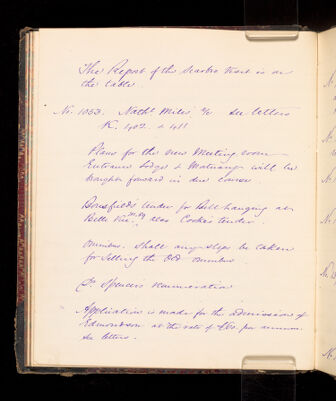 The Report of the Scarbro trust is on
the table.
No. 1053. Nathl. Miles, c/o see letters
K. 402. & 411
Plans for the new Meeting room
Entrance Lodge & Mortuary will be
brought forward in due course.
Bousfield's tender for Bell hanging at
Belle Vue also Cooke's tender.
Omnibus. Shall any steps be taken
for selling the Old omnibus
Dr Spencers remuneration
Application is made for the admission of
Edmondson at the rate of per annum.
see letters.